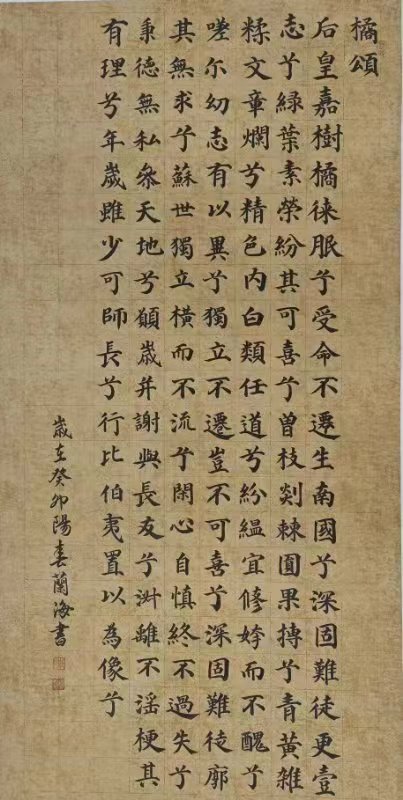 橘頌
后皇嘉樹橘徠服兮受命不遷生南國兮深固難徙更壹
志兮緑葉素榮紛其可喜兮曾枝剡棘圓果摶兮青黃雑
糅文章爛兮精色内白類任道兮紛緼宜修姱而不醜兮
嗟尔幼志有以異兮獨立不遷豈不可喜兮深固難徙廓
其無求兮蘇世獨立橫而不流兮閑心自慎終不過失兮
秉德無私參天地兮願歲并謝與長友兮淑離不淫梗其
有理兮年歲雖少可師長兮行比伯夷置以為像兮
歲在癸卯陽春蘭海書